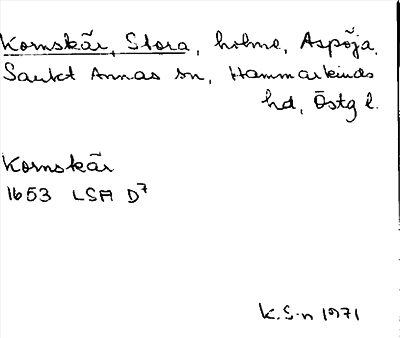 Kornskär, Stora, holme, Aspöja,
Sankt Annas sn, Hammarkinds
hd, Östg l.
Kornskär
1653 LSA D7
K.S-n 1971